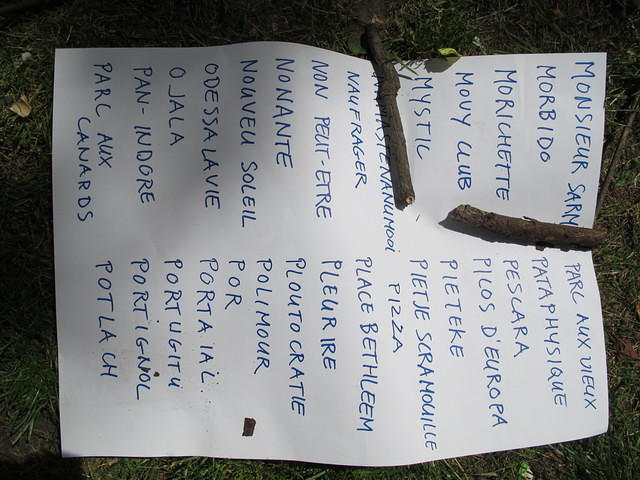 MONSIEUR SARM
MORBIDO
MORICHETTE
MOUY CLUB
MYSTIC
NAUFRAGER
NON PEUT-ETRE
NONANTE
NOUVEU SOLEIL
ODESSA LA VIE
OJALA
PAN-INDORE
PARC AUX
CANARDS
PARC AUX VIEUX
PATAPHYSIQUE
PESCARA
PICOS D'EUROPA
PIETEKE
PIETJE SCRAMOUILLE
PIZZA
PLACE BETHLEEM
PLEURIRE
PLOUTOCRATIE
POLIMOUR
POR
PORTAIAL
PORTUGITU
PORTIGNOL
POTLACH